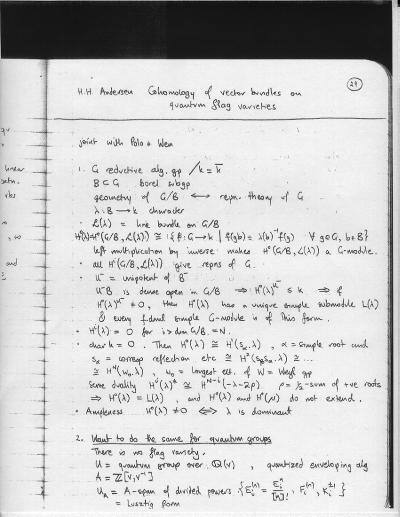 29
H.H. Andersen Cohomology of vector bundles on
quantum flag varieties
joint with Polo & Wen
1. G reductive alg. gp /k = k̄
B ⊂ G borel subgp
geometry of G/B ⟷ repn. theory of G
λ: B → k character
• L(λ) = line bundle on G/B
H⁰(λ)=H⁰(G/B, L(λ)) ≅ {f: G → k | f(gb) = λ(b)⁻¹f(g) ∀ g∈G, b∈B}
left multiplication by inverse makes H⁰(G/B, L(λ)) a G-module.
• all Hⁱ(G/B, L(λ)) give repns of G.
• U⁻ = unipotent of B⁻
U⁻B is dense open in G/B ⇒ H⁰(λ)^U⁻ ≤ k ⇒ if
H⁰(λ)^U⁻ ≠ 0, then H⁰(λ) has a unique simple submodule L(λ)
& every f.dml simple G-module is of this form.
• Hⁱ(λ) = 0 for i > dim G/B = N.
• char k = 0. Then H⁰(λ) ≅ H¹(sα.λ), α = simple root and
sα = corresp reflection etc ≅ H²(sβsα.λ) ≅ ...
≅ H^N(w₀.λ), w₀ = longest elt. of W = Weyl gp
Serre duality Hⁱ(λ)* ≅ H^N-i(-λ-2ρ) ρ = ½-sum of +ve roots
⇒ H⁰(λ) = L(λ), and H⁰(λ) and H⁰(μ) do not extend.
• Ampleness H⁰(λ) ≠ 0 ⟺ λ is dominant
2. Want to do the same for quantum groups
There is no flag variety.
U = quantum group over Q(v), quantized enveloping alg
A = Z[v,v⁻¹]
U_A = A-span of divided powers {Eᵢ⁽ⁿ⁾ = Eᵢⁿ/[n]!, Fᵢ⁽ⁿ⁾, Kᵢ^±1}
= Lusztig form